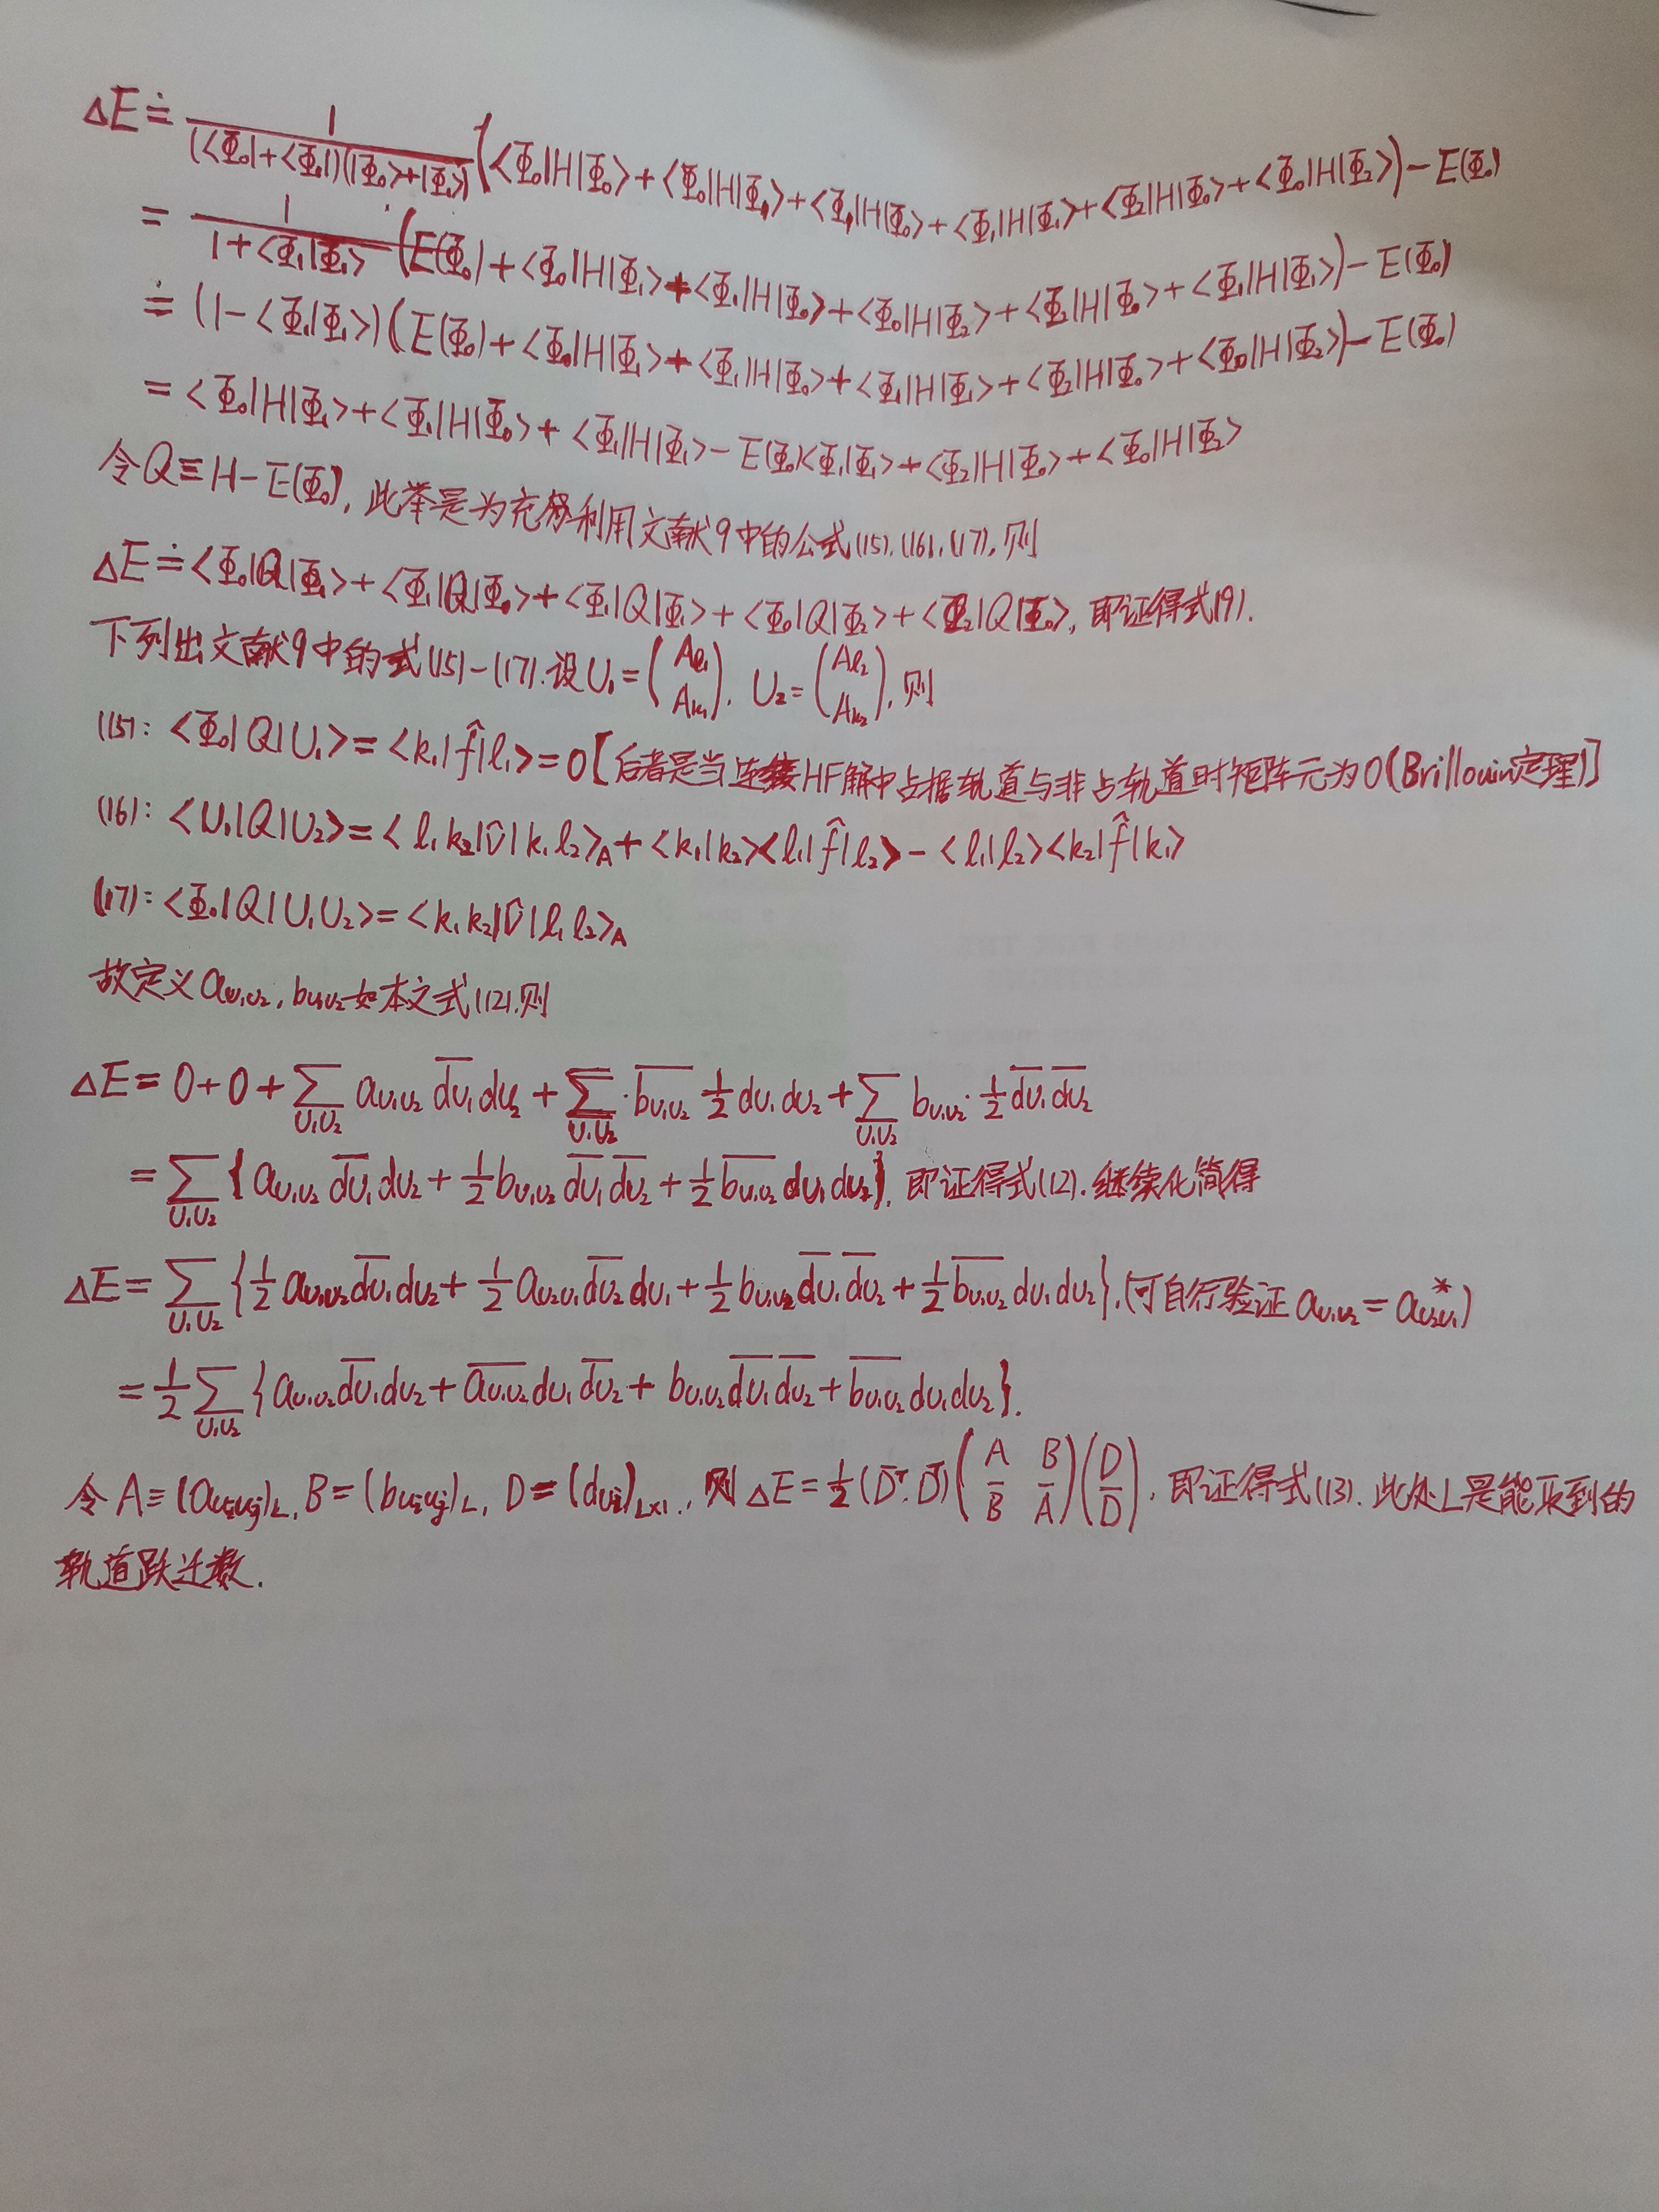 ΔE ≐ 1/((<Φ₀|+<Φ₁|)(|Φ₀>+|Φ₁>)) (<Φ₀|H|Φ₀>+<Φ₀|H|Φ₁>+<Φ₁|H|Φ₀>+<Φ₁|H|Φ₁>+<Φ₂|H|Φ₀>+<Φ₀|H|Φ₂>)-E(Φ₀)
= 1/(1+<Φ₁|Φ₁>) (E(Φ₀)+<Φ₀|H|Φ₁>+<Φ₁|H|Φ₀>+<Φ₀|H|Φ₂>+<Φ₂|H|Φ₀>+<Φ₁|H|Φ₁>)-E(Φ₀)
≐ (1-<Φ₁|Φ₁>)(E(Φ₀)+<Φ₀|H|Φ₁>+<Φ₁|H|Φ₀>+<Φ₁|H|Φ₁>+<Φ₂|H|Φ₀>+<Φ₀|H|Φ₂>)-E(Φ₀)
= <Φ₀|H|Φ₁>+<Φ₁|H|Φ₀>+<Φ₁|H|Φ₁>-E(Φ₀)<Φ₁|Φ₁>+<Φ₂|H|Φ₀>+<Φ₀|H|Φ₂>
令Q≡H-E(Φ₀), 此举是为充分利用文献9中的公式(15),(16),(17),则
ΔE≐<Φ₀|Q|Φ₁>+<Φ₁|Q|Φ₀>+<Φ₁|Q|Φ₁>+<Φ₀|Q|Φ₂>+<Φ₂|Q|Φ₀>, 即证得式(9).
下列出文献9中的式(15)-(17).设U₁=(A_l₁ A_k₁), U₂=(A_l₂ A_k₂),则
(15): <Φ₀|Q|U₁>=<k₁|f̂|l₁>=0[后者是当连接HF解中占据轨道与非占轨道时矩阵元为0(Brillouin定理)]
(16): <U₁|Q|U₂>=<l₁k₂|v̂|k₁l₂>_A+<k₁|k₂><l₁|f̂|l₂>-<l₁|l₂><k₂|f̂|k₁>
(17): <Φ₀|Q|U₁U₂>=<k₁k₂|v̂|l₁l₂>_A
故定义a_U₁U₂, b_U₁U₂如本文式(12),则
ΔE=0+0+∑_U₁U₂ a_U₁U₂ \overline{d_U₁} d_U₂+∑_U₁U₂·\overline{b_U₁U₂} ½ d_U₁ d_U₂+∑_U₁U₂ b_U₁U₂·½ \overline{d_U₁} \overline{d_U₂}
=∑_U₁U₂{a_U₁U₂ \overline{d_U₁} d_U₂+½ b_U₁U₂ \overline{d_U₁} \overline{d_U₂}+½ \overline{b_U₁U₂} d_U₁ d_U₂}, 即证得式(12).继续化简得
ΔE=∑_U₁U₂{½ a_U₁U₂ \overline{d_U₁} d_U₂+½ a_U₂U₁ \overline{d_U₂} d_U₁+½ b_U₁U₂ \overline{d_U₁} \overline{d_U₂}+½ \overline{b_U₁U₂} d_U₁ d_U₂},(可自行验证a_U₁U₂=a*_U₂U₁)
=½∑_U₁U₂{a_U₁U₂ \overline{d_U₁} d_U₂+\overline{a_U₁U₂} d_U₁ \overline{d_U₂}+b_U₁U₂ \overline{d_U₁} \overline{d_U₂}+\overline{b_U₁U₂} d_U₁ d_U₂}.
令A≡(a_UiUj)_L, B=(b_UiUj)_L, D=(d_Ui)_L×1, 则ΔE=½(D†, D̃)(A B \overline{B} \overline{A})(D \overline{D}), 即证得式(13). 此处L是能取到的
轨道跃迁数.